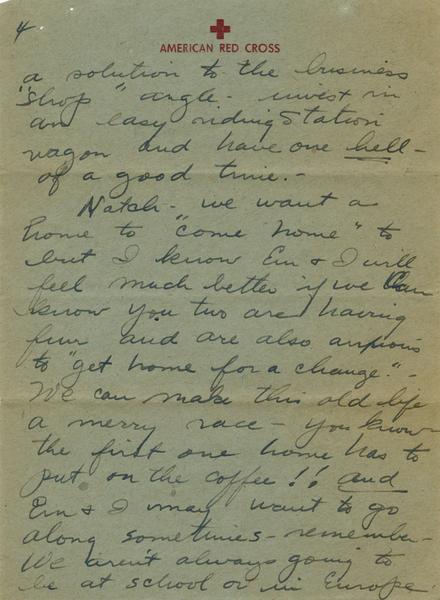 4
AMERICAN RED CROSS
a solution to the business
"shop" angle - invest in
an easy riding Station
wagon and have one hell-
of a good time. -
Natch - we want a
home to "come home" to
but I know Em & I will
feel much better if we can
know you two are having
fun and are also anxious
to "get home for a change." -
We can make this old life
a merry race - you know
the first one home has to
put on the coffee!! and
Em & I may want to go
along sometimes - remember -
We aren't always going to
be at school or in Europe.